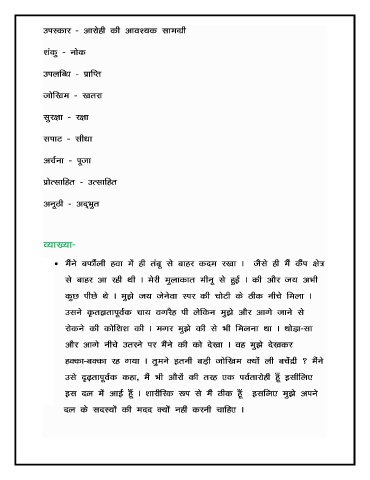 उपस्कार - आरोही की आवश्यक सामग्री
शंकु - नोक
उपलब्धि - प्राप्ति
जोखिम - खतरा
सुरक्षा - रक्षा
सपाट - सीधा
अर्चना - पूजा
प्रोत्साहित - उत्साहित
अनूठी - अद्भुत
व्याख्या-
• मैंने बर्फीली हवा में ही तंबू से बाहर कदम रखा । जैसे ही मैं कैंप क्षेत्र
से बाहर आ रही थी । मेरी मुलाकात मीनू से हुई । की और जय अभी
कुछ पीछे थे । मुझे जय जेनेवा स्पर की चोटी के ठीक नीचे मिला ।
उसने कृतज्ञतापूर्वक चाय वगरैह पी लेकिन मुझे और आगे जाने से
रोकने की कोशिश की । मगर मुझे की से भी मिलना था । थोड़ा-सा
और आगे नीचे उतरने पर मैंने की को देखा । वह मुझे देखकर
हक्का-बक्का रह गया । तुमने इतनी बड़ी जोखिम क्यों ली बचेंद्री ? मैंने
उसे दृढ़तापूर्वक कहा, मैं भी औरों की तरह एक पर्वतारोही हूँ इसीलिए
इस दल में आई हूँ । शारीरिक रूप से मैं ठीक हूँ इसलिए मुझे अपने
दल के सदस्यों की मदद क्यों नहीं करनी चाहिए ।